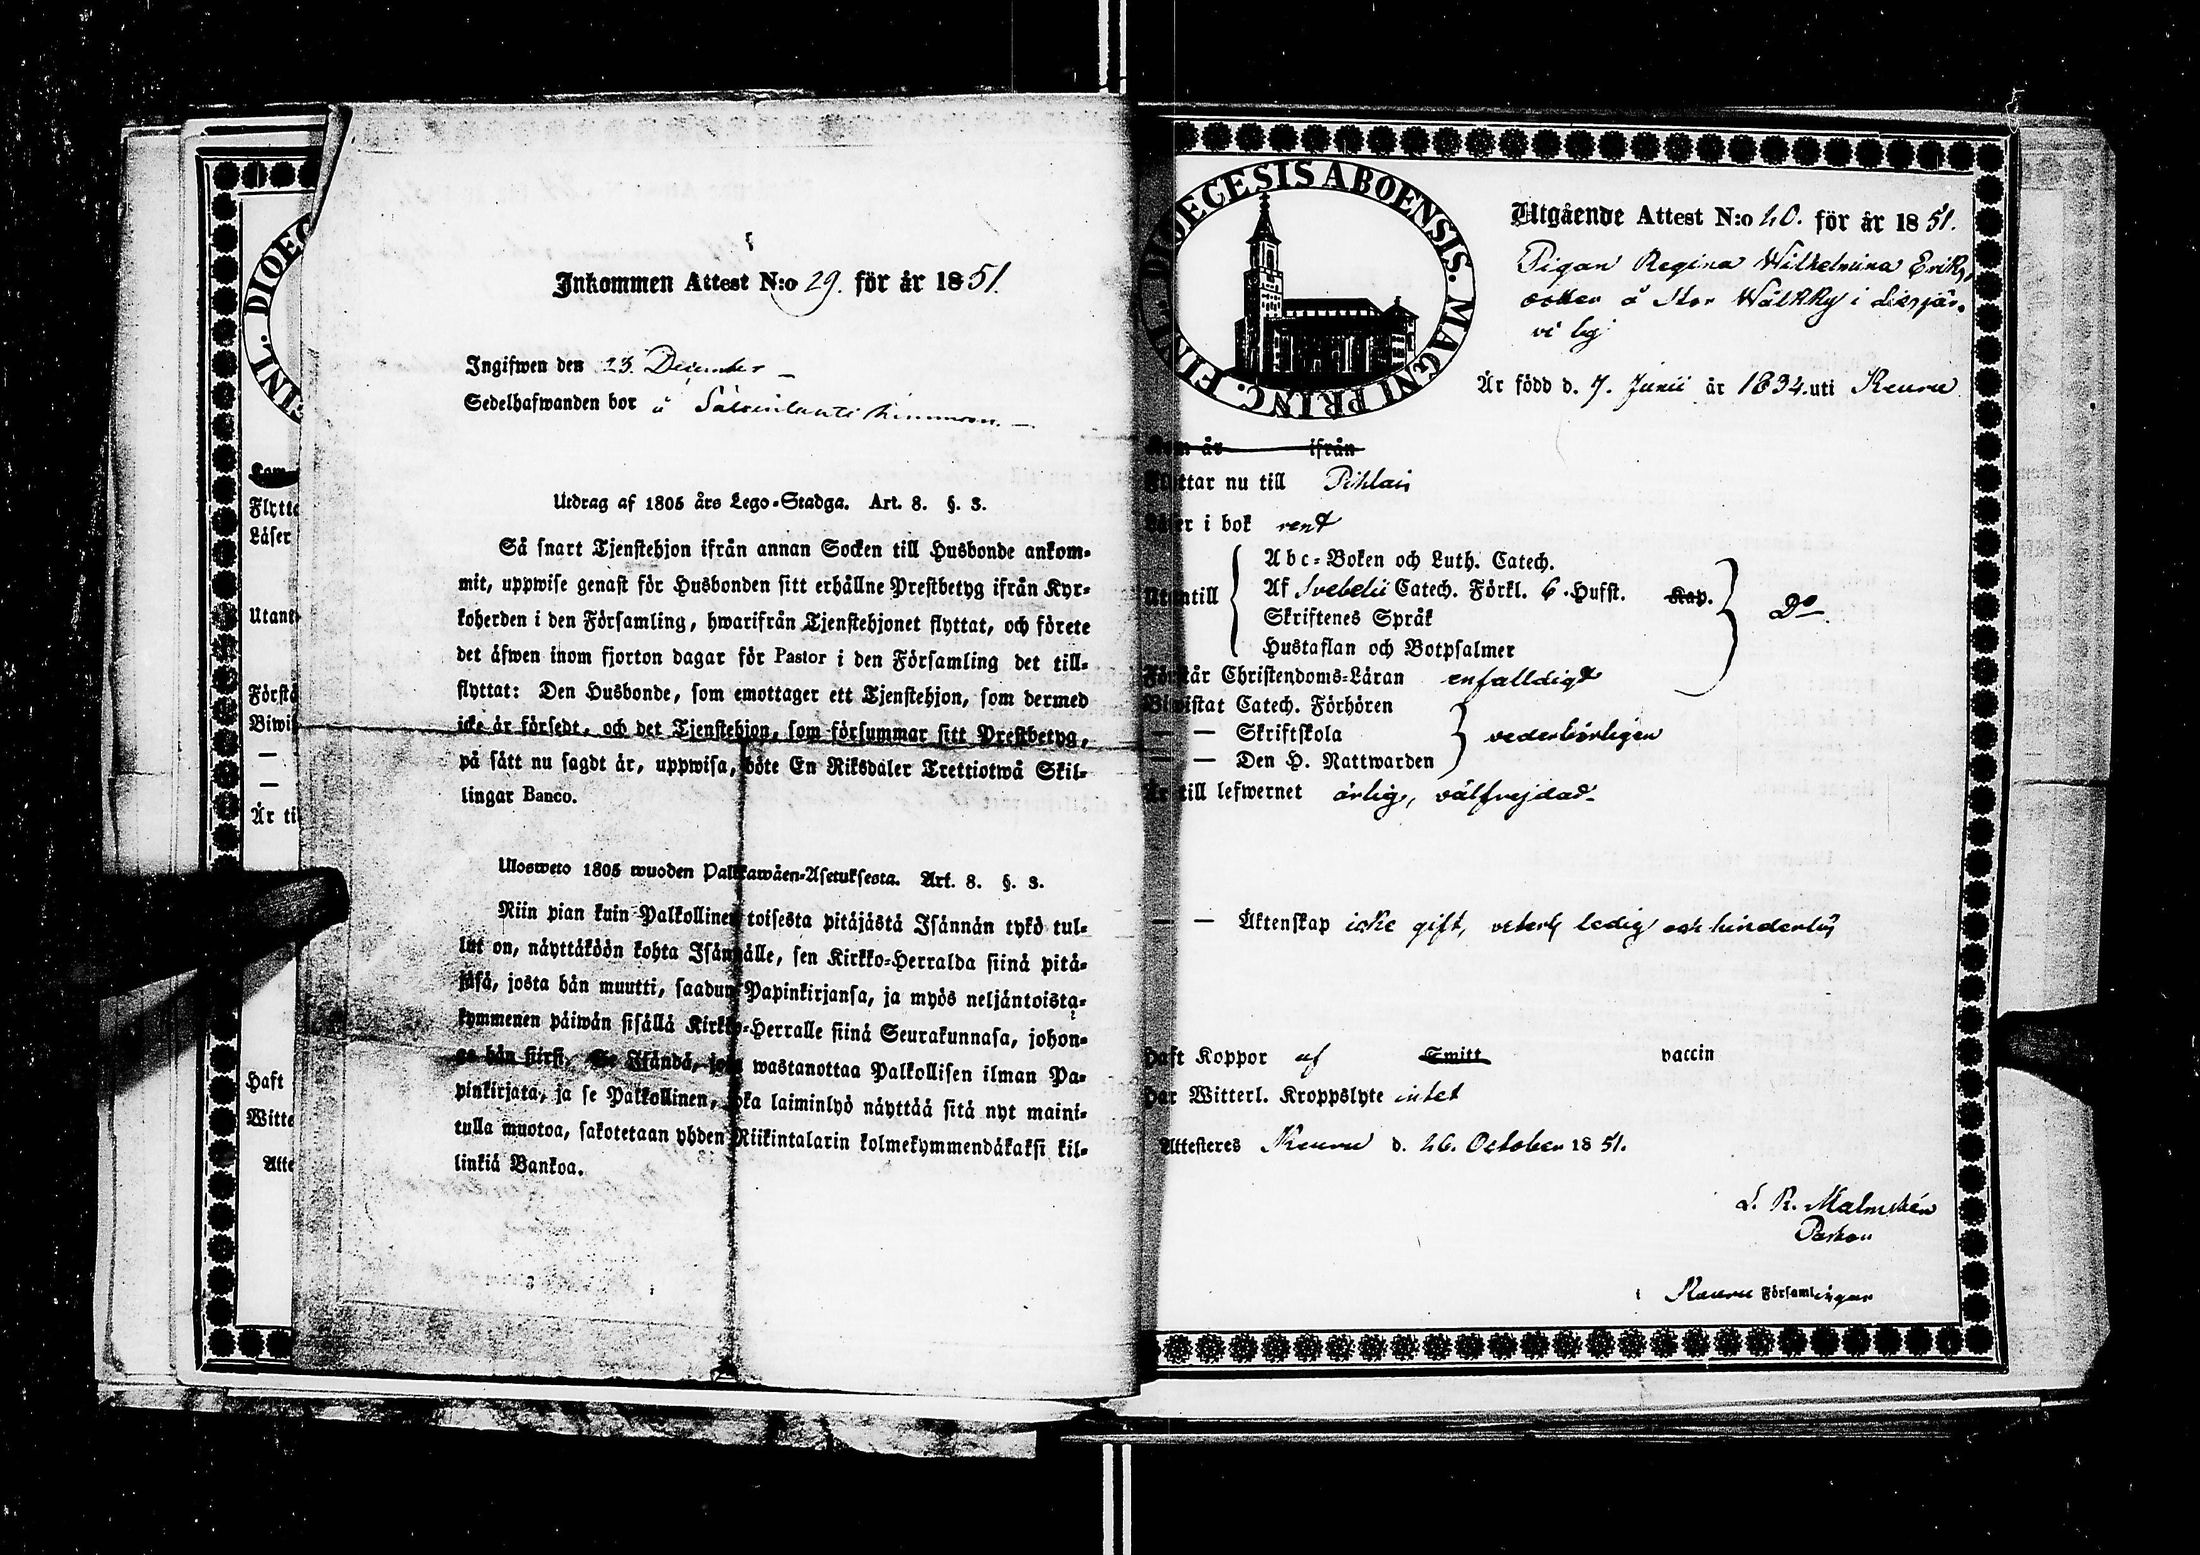 Inkommen Attest N:o 29. för år 1851.
Ingifwen den 23. December
Sedelhafwanden bor å
Utdrag af 1805 års Lego-Stadga. Art. 8. §. 3.
Så snart Tjenstehjon ifrån annan Socken till Husbonde ankom-
mit, uppwise genast för Husbonden sitt erhållne Prestbetyg ifrån Kyr-
koherden i den Församling, hwarifrån Tjenstehjonet flyttat, och förete
det äfwen inom fjorton dagar för Pastor i den Församling det till-
flyttat: Den Husbonde, som emottager ett Tjenstehjon, som dermed
icke är försedt, och det Tjenstehjon, som försummar sitt Prestbetyg,
på sätt nu sagdt är, uppwisa, böte En Riksdaler Trettiotwå Skil-
lingar Banco.
Ulosweto 1805 wuoden Palkkawäen-Asetuksesta. Art. 8. §. 3.
Niin pian kuin Palkollinen toisesta pitäjästä Isännän tykö tul-
lut on, näyttäköön kohta Isännälle, sen Kirkko-Herralda siinä pitä-
jäsä, josta hän muutti, saadun Papinkirjansa, ja myös neljäntoista-
kymmenen päiwän sisällä Kirkko-Herralle siinä Seurakunnasa, johon-
ga hän siirsi. Se Isändä, joka wastanottaa Palkollisen ilman Pa-
pinkirjata, ja se Palkollinen, joka laiminlyö näyttää sitä nyt maini-
tulla muotoa, sakotetaan yhden Riikintalarin kolmekymmendäkaksi kil-
linkiä Bankoa.
FINL. DIOEC
Flytta
Läser
Utant
Förstå
Biwist
—
—
Är til
Haft
Witte
Atte
FINL. DIOECESIS ABOENSIS. MAGNI PRINC.
Utgående Attest N:o 40. för år 1851.
Pigan Regina Wilhelmina Eriks
dotter å Stor Wälkky i Liesjär-
vi by
Är född d. 7. Junii år 1834. uti Keuru
Kom år ifrån
Flyttar nu till Pihlais
Läser i bok rent
Abc-Boken och Luth. Catech.
Utantill Af Svebelii Catech. Förkl. 6. Hufst. Kap. Do
Skriftenes Språk
Hustaflan och Botpsalmer
Förstår Christendoms-Läran enfalldigt
Biwistat Catech. Förhören
— — Skriftskola vederbörligen
— — Den H. Nattwarden
Är till lefwernet ärlig, välfrejdad
— — Äktenskap icke gift, veterl. ledig och hinderlös
Haft Koppor af Smitt vaccin
Har Witterl. Kroppslyte intet
Attesteres Keuru d. 26. October 1851.
L. R. Malmstén
Pastor
i Keuru Församlingar